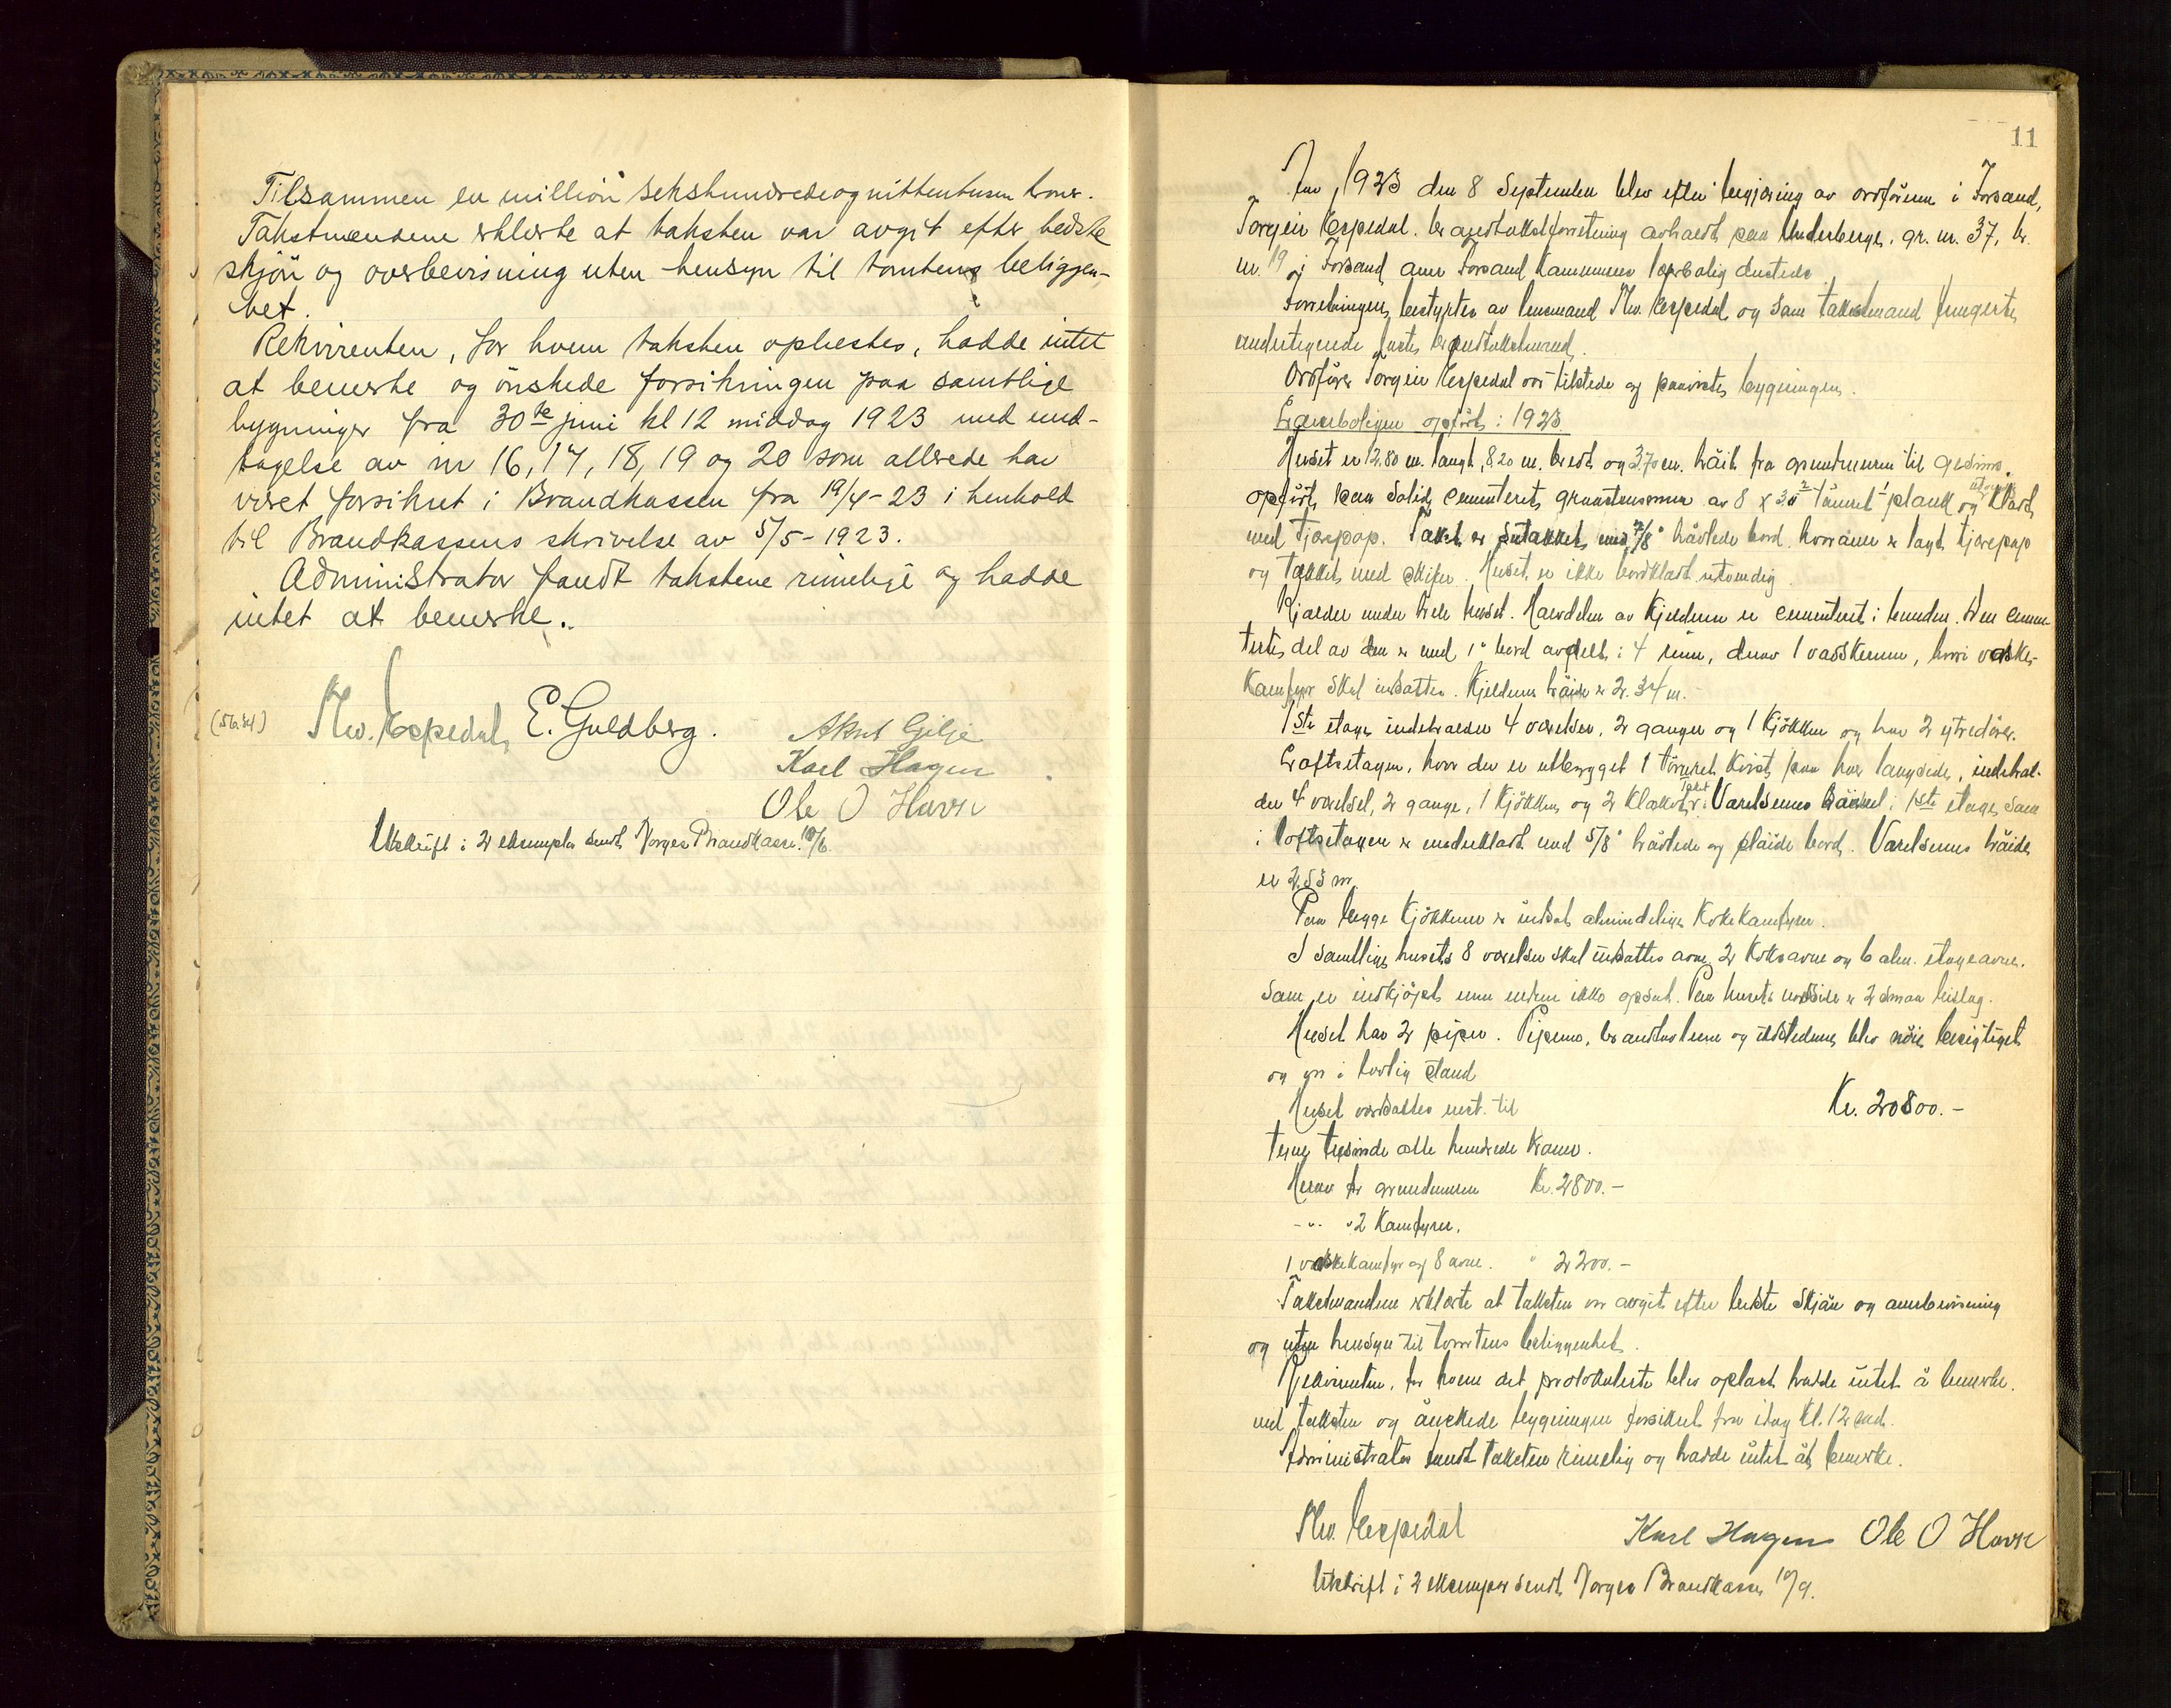 Tilsammen en million sekshundredeognittentusen kroner.
Takstmændene erklærte at taksten var avgit efter bedste
skjön og overbevisning uten hensyn til tomtens beliggen-
het.
Rekvirenten, for hvem taksten oplæstes, hadde intet
at bemerke og önskede forsikringen paa samtlige
bygninger fra 30te juni kl 12 middag 1923 med und-
tagelse av nr 16, 17, 18, 19 og 20 som allerede har
været forsikret i Brandkassen fra 19/4-23 i henhold
til Brandkassens skrivelse av 5/5-1923.
Administrator fandt takstene rimelige og hadde
intet at bemerke.
Espedal, E. Goldberg. Aknt Gilje
Karl Hagen
Ole O Havn
Utskrift i 2 eksempla sendt Norges Brandkasse
11
Aar 1923 den 8 September blev efter begjæring av ordföreren i Forsand,
Torgeir Espedal. brandtakstforretning avholdt paa Underberge, gr. nr. 37, br.
nr. 19 i Forsand over Forsand kommunes lærerbolig dersteds
Forretningen bestyrtes av lensmand Espedal og som takstmænd fungerte
undertegnede faste brandtakstmænd.
Ordförer Torgeir Espedal var tilstede og paaviste bygningen.
Lærerboligen opfört i 1923
Huset er 12.80 m. langt, 8.20 m. bredt og 3.70 m. höit fra grundmuren til gesims.
opfört paa solid cementeret graastensmur av tömret plank og utvendig klædt
med Tjærepap. Taket er sutakket med 7/8" hövlede bord. hvorover er lagt tjærepap
og tækket med skifer. Huset er ikke bordklædt utvendig.
Kjælder under hele huset. Halvdelen av kjelderen er cementeret i bunden. Den cemen-
terte del av den er med 1" bord avdelt i 4 rum, derav 1 vaskerum, hvori vaske-
kamfyr skal indsættes. Kjelderens höide er 2.34 m.
1ste etage indeholder 4 værelser, 2 ganger og 1 kjökken og har 2 ytredörer.
Loftsetagen, hvor der er utbygget 1 tömret kvist paa hver langside, indehol-
der 4 værelser, 2 gange, 1 kjökken og 2 Værelsernes i 1ste etage som
i loftsetagen er underklædt med 5/8" hövlede og plöide bord. Værelsernes höide
er 2.55 m.
Paa begge kjökkener er indsat almindelige kokekamfyrer.
I samtlige husets 8 værelser skal indsættes ovne, 2 koksovne og 6 alm. etageovne.
som er indkjöpt men endnu ikke opsat. Paa husets nordside er 2 smaa bislag.
Huset har 2 piper. Piperne, brandmurene og ildstederne blev nöie besigtiget
og er i lovlig stand
Huset værdsættes nu til Kr. 20800.-
tyve tusinde otte hundrede kroner.
Herav for grundmuren Kr. 2800.-
-"- " 2 kamfyrer,
1 vaskekamfyr og 8 ovne. " 2200.-
Takstmændene erklærte at taksten var avgit efter bedste skjön og overbevisning
og uten hensyn til tomtens beliggenhet.
Rekvirenten, for hvem det protokollerte blev oplæst hadde intet å bemerke.
ved taksten og önskede bygningen forsikret fra idag kl. 12 md.
Administrator fandt taksten rimelig og hadde intet åt bemerke.
Espedal Karl Hagen Ole O Havn
Utskrift i 2 eksempler sendt Norges Brandkasse 10/9.